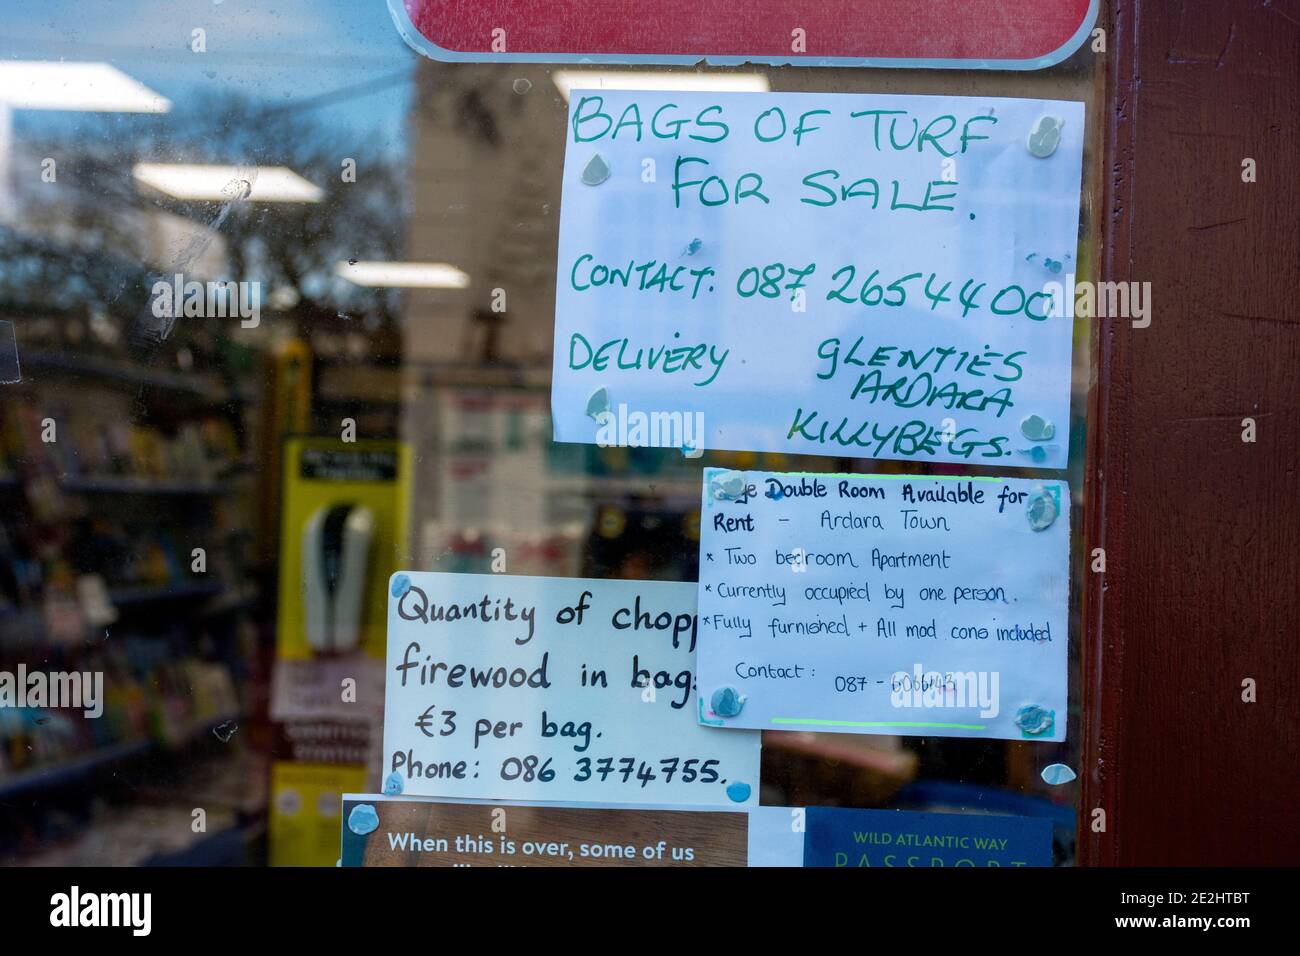 BAGS OF TURF
FOR SALE.
CONTACT. 087 2654400
DELIVERY GLENTIES
ARDARA
KILLYBEGS.
Double Room Available for
Rent - Ardara Town
* Two bedroom Apartment
* Currently occupied by one person.
* Fully furnished + All mod cons included
Contact :
087 -
Quantity of
firewood in
€3 per bag.
Phone: 086 3774755.
When this is over, some of us
WILD ATLANTIC WAY
PASSPORT
alamy
Image ID: 2E2HTBT
www.alamy.com